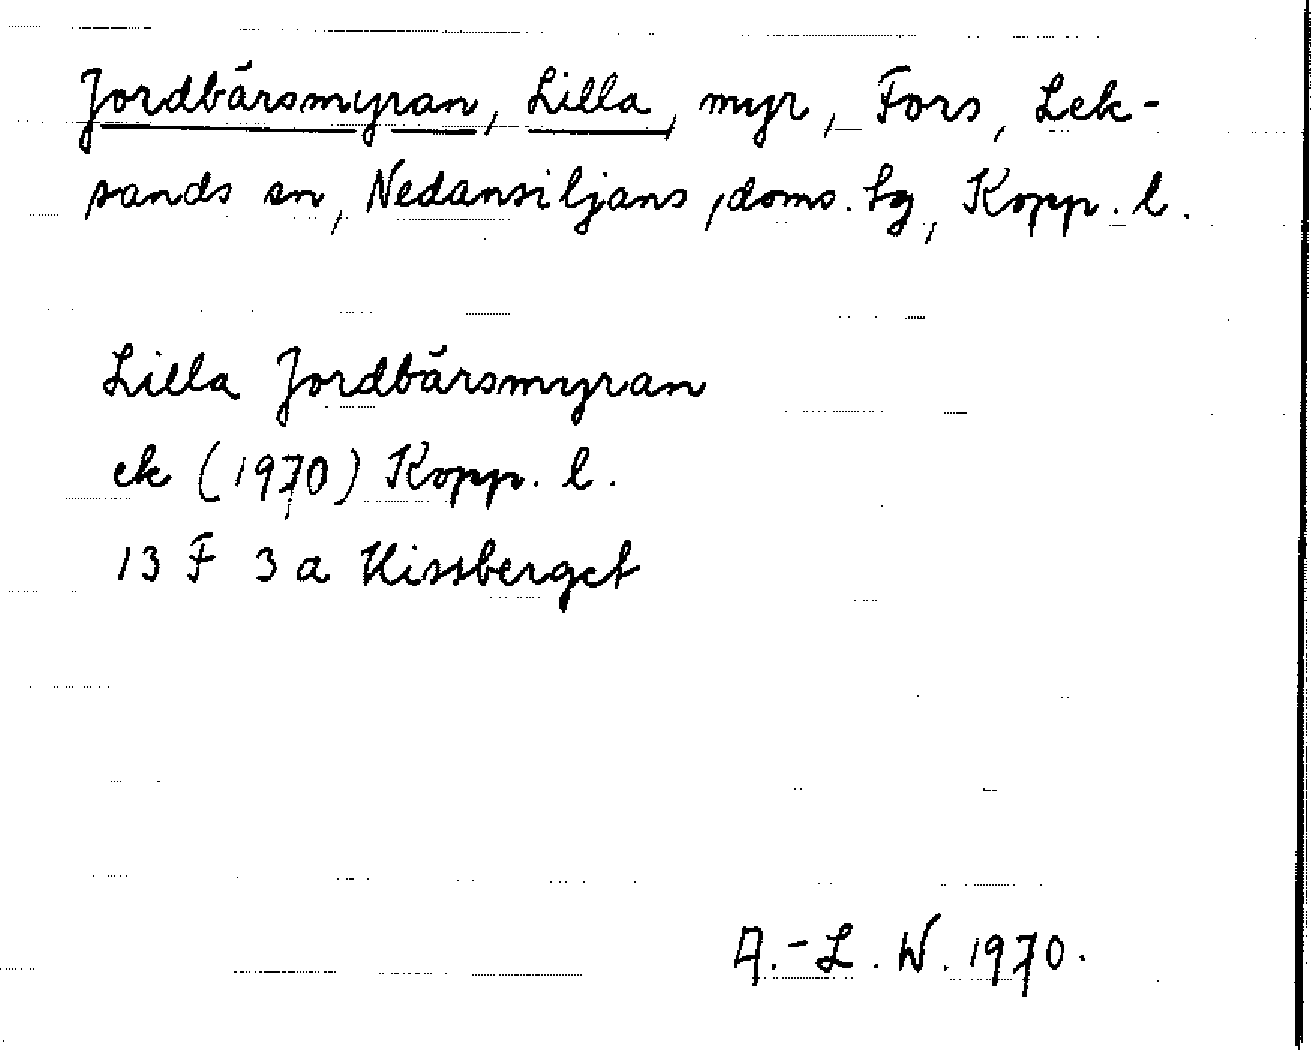 Jordbärsmyran, Lilla, myr, Fors, Lek-
sands sn, Nedansiljans, doms. lg, Kopp. l.
Lilla Jordbärsmyran
ek (1970) Kopp. l.
13 F 3a Kissberget
A.-L. W. 1970.